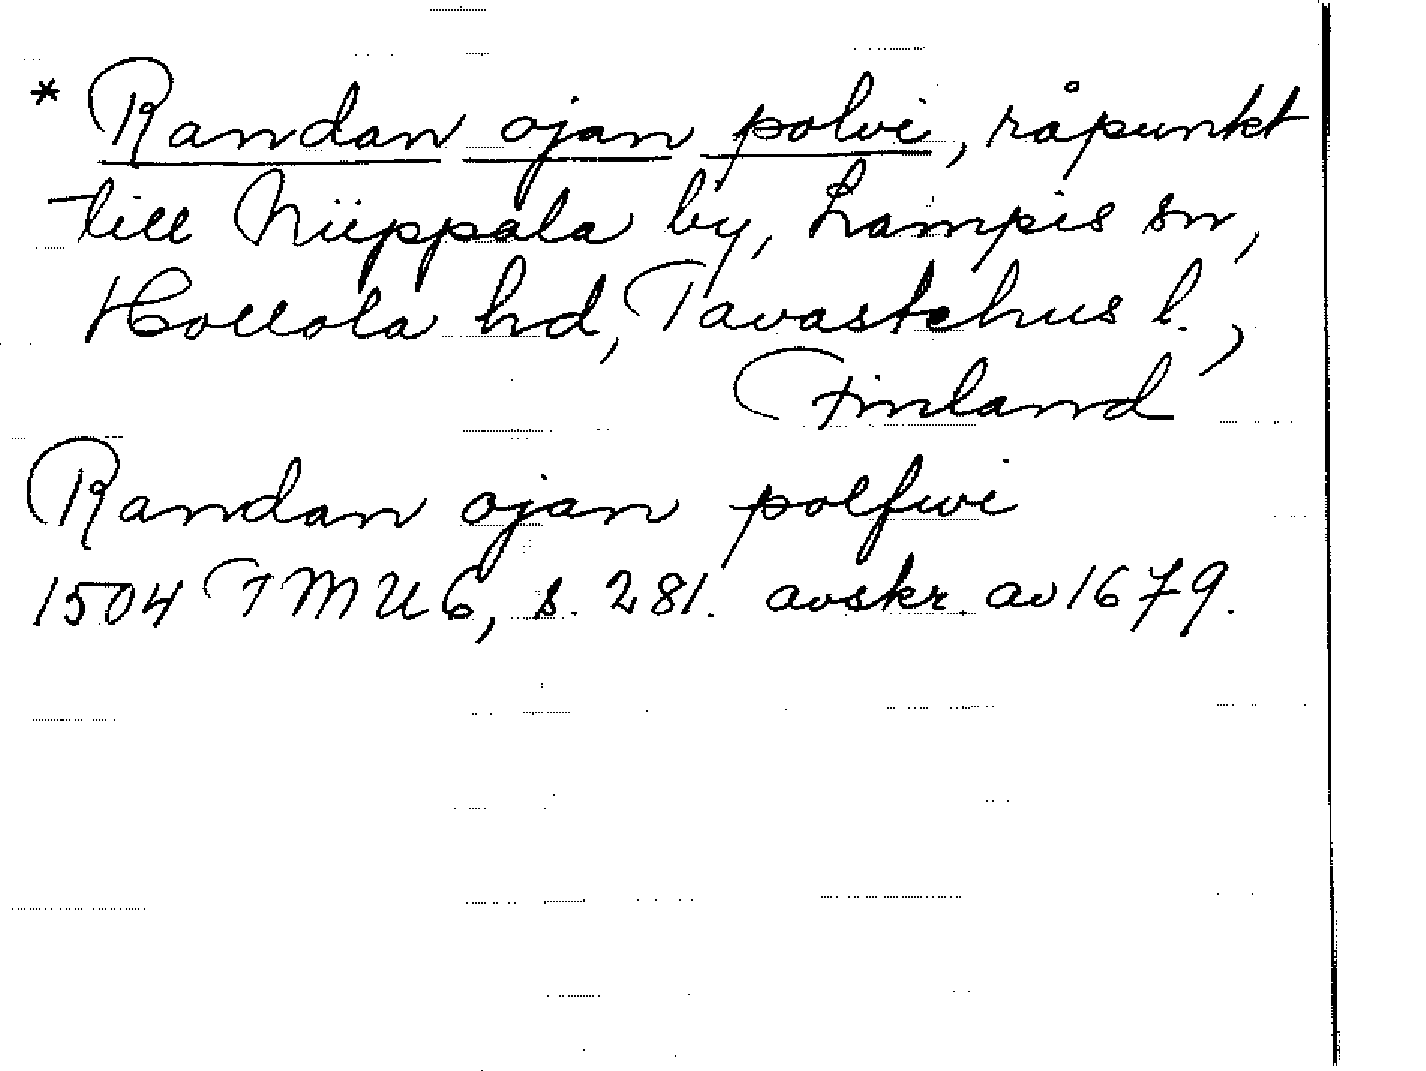 * Randan ojan polvi, råpunkt
till Niippala by, Lampis sn,
Hollola hd, Tavastehus l.,
Finland
Randan ojan polfwi
1504 TMU 6, s. 281. avskr. av 1679.